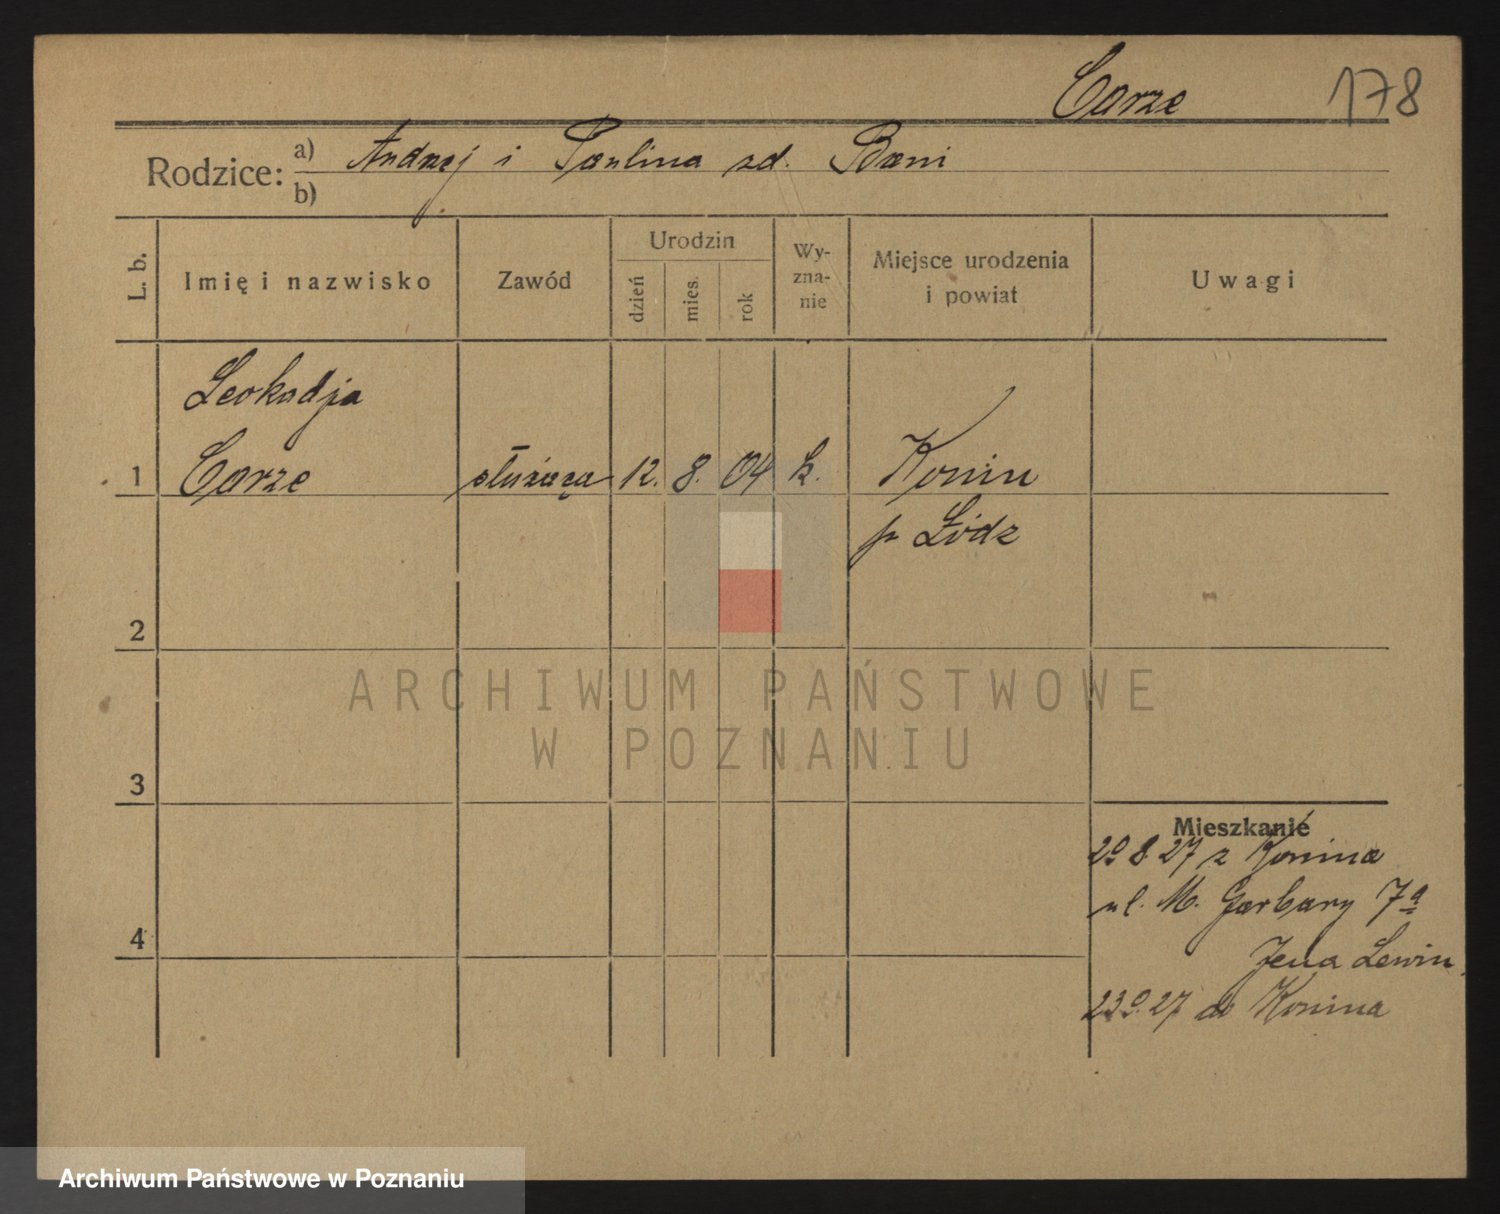 Carze 178
Rodzice: a) Andrzej i Paulina zd. Bani
b)
L. b. Imię i nazwisko Zawód Urodzin dzień mies. rok Wyznanie Miejsce urodzenia i powiat Uwagi
Leokadja
1 Carze służąca 12. 8. 04 k. Konin
p Łódz
2
ARCHIWUM PAŃSTWOWE
W POZNANIU
3
Mieszkanie
29 8 27 z Konina
ul. M. Garbary 7a
4
Lewin
23 9. 27 do Konina
Archiwum Państwowe w Poznaniu